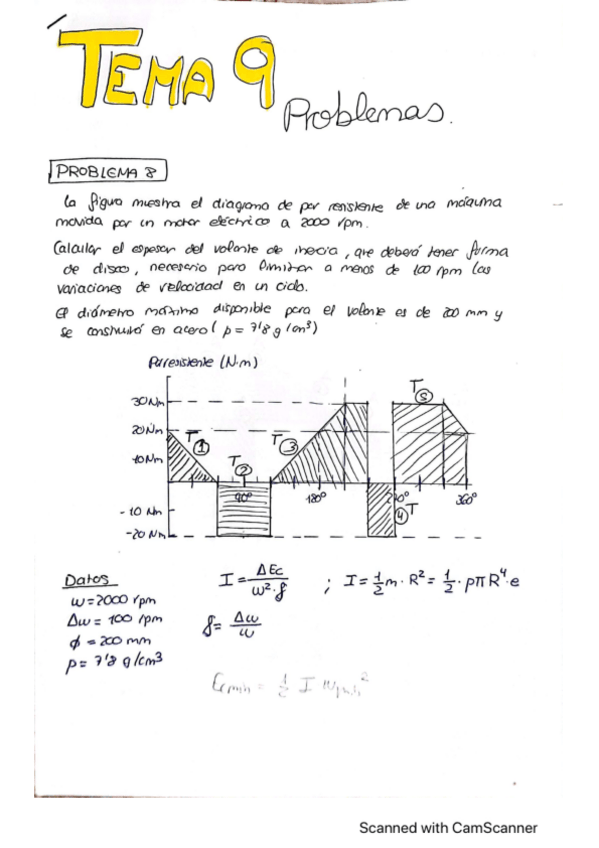 TEMA 9
Problemas.
PROBLEMA 8
La figura muestra el diagrama de par resistente de una máquina
movida por un motor eléctrico a 2000 rpm.
Calcular el espesor del volante de inercia, que deberá tener forma
de disco, necesario para limitar a menos de 100 rpm las
variaciones de velocidad en un ciclo.
El diámetro máximo disponible para el volante es de 200 mm y
se construirá en acero (ρ = 7'8 g/cm³)
Par resistente (N·m)
30 Nm
20 Nm
10 Nm
-10 Nm
-20 Nm
T①
T②
T③
④T
T⑤
90º
180º
270º
360º
Datos
ω = 2000 rpm
Δω = 100 rpm
φ = 200 mm
ρ = 7'8 g/cm³
I = ΔEc / ω²·f ; I = 1/2 m·R² = 1/2·ρπR⁴·e
f = Δω / ω
Ecmin = 1/2 I ω²
Scanned with CamScanner